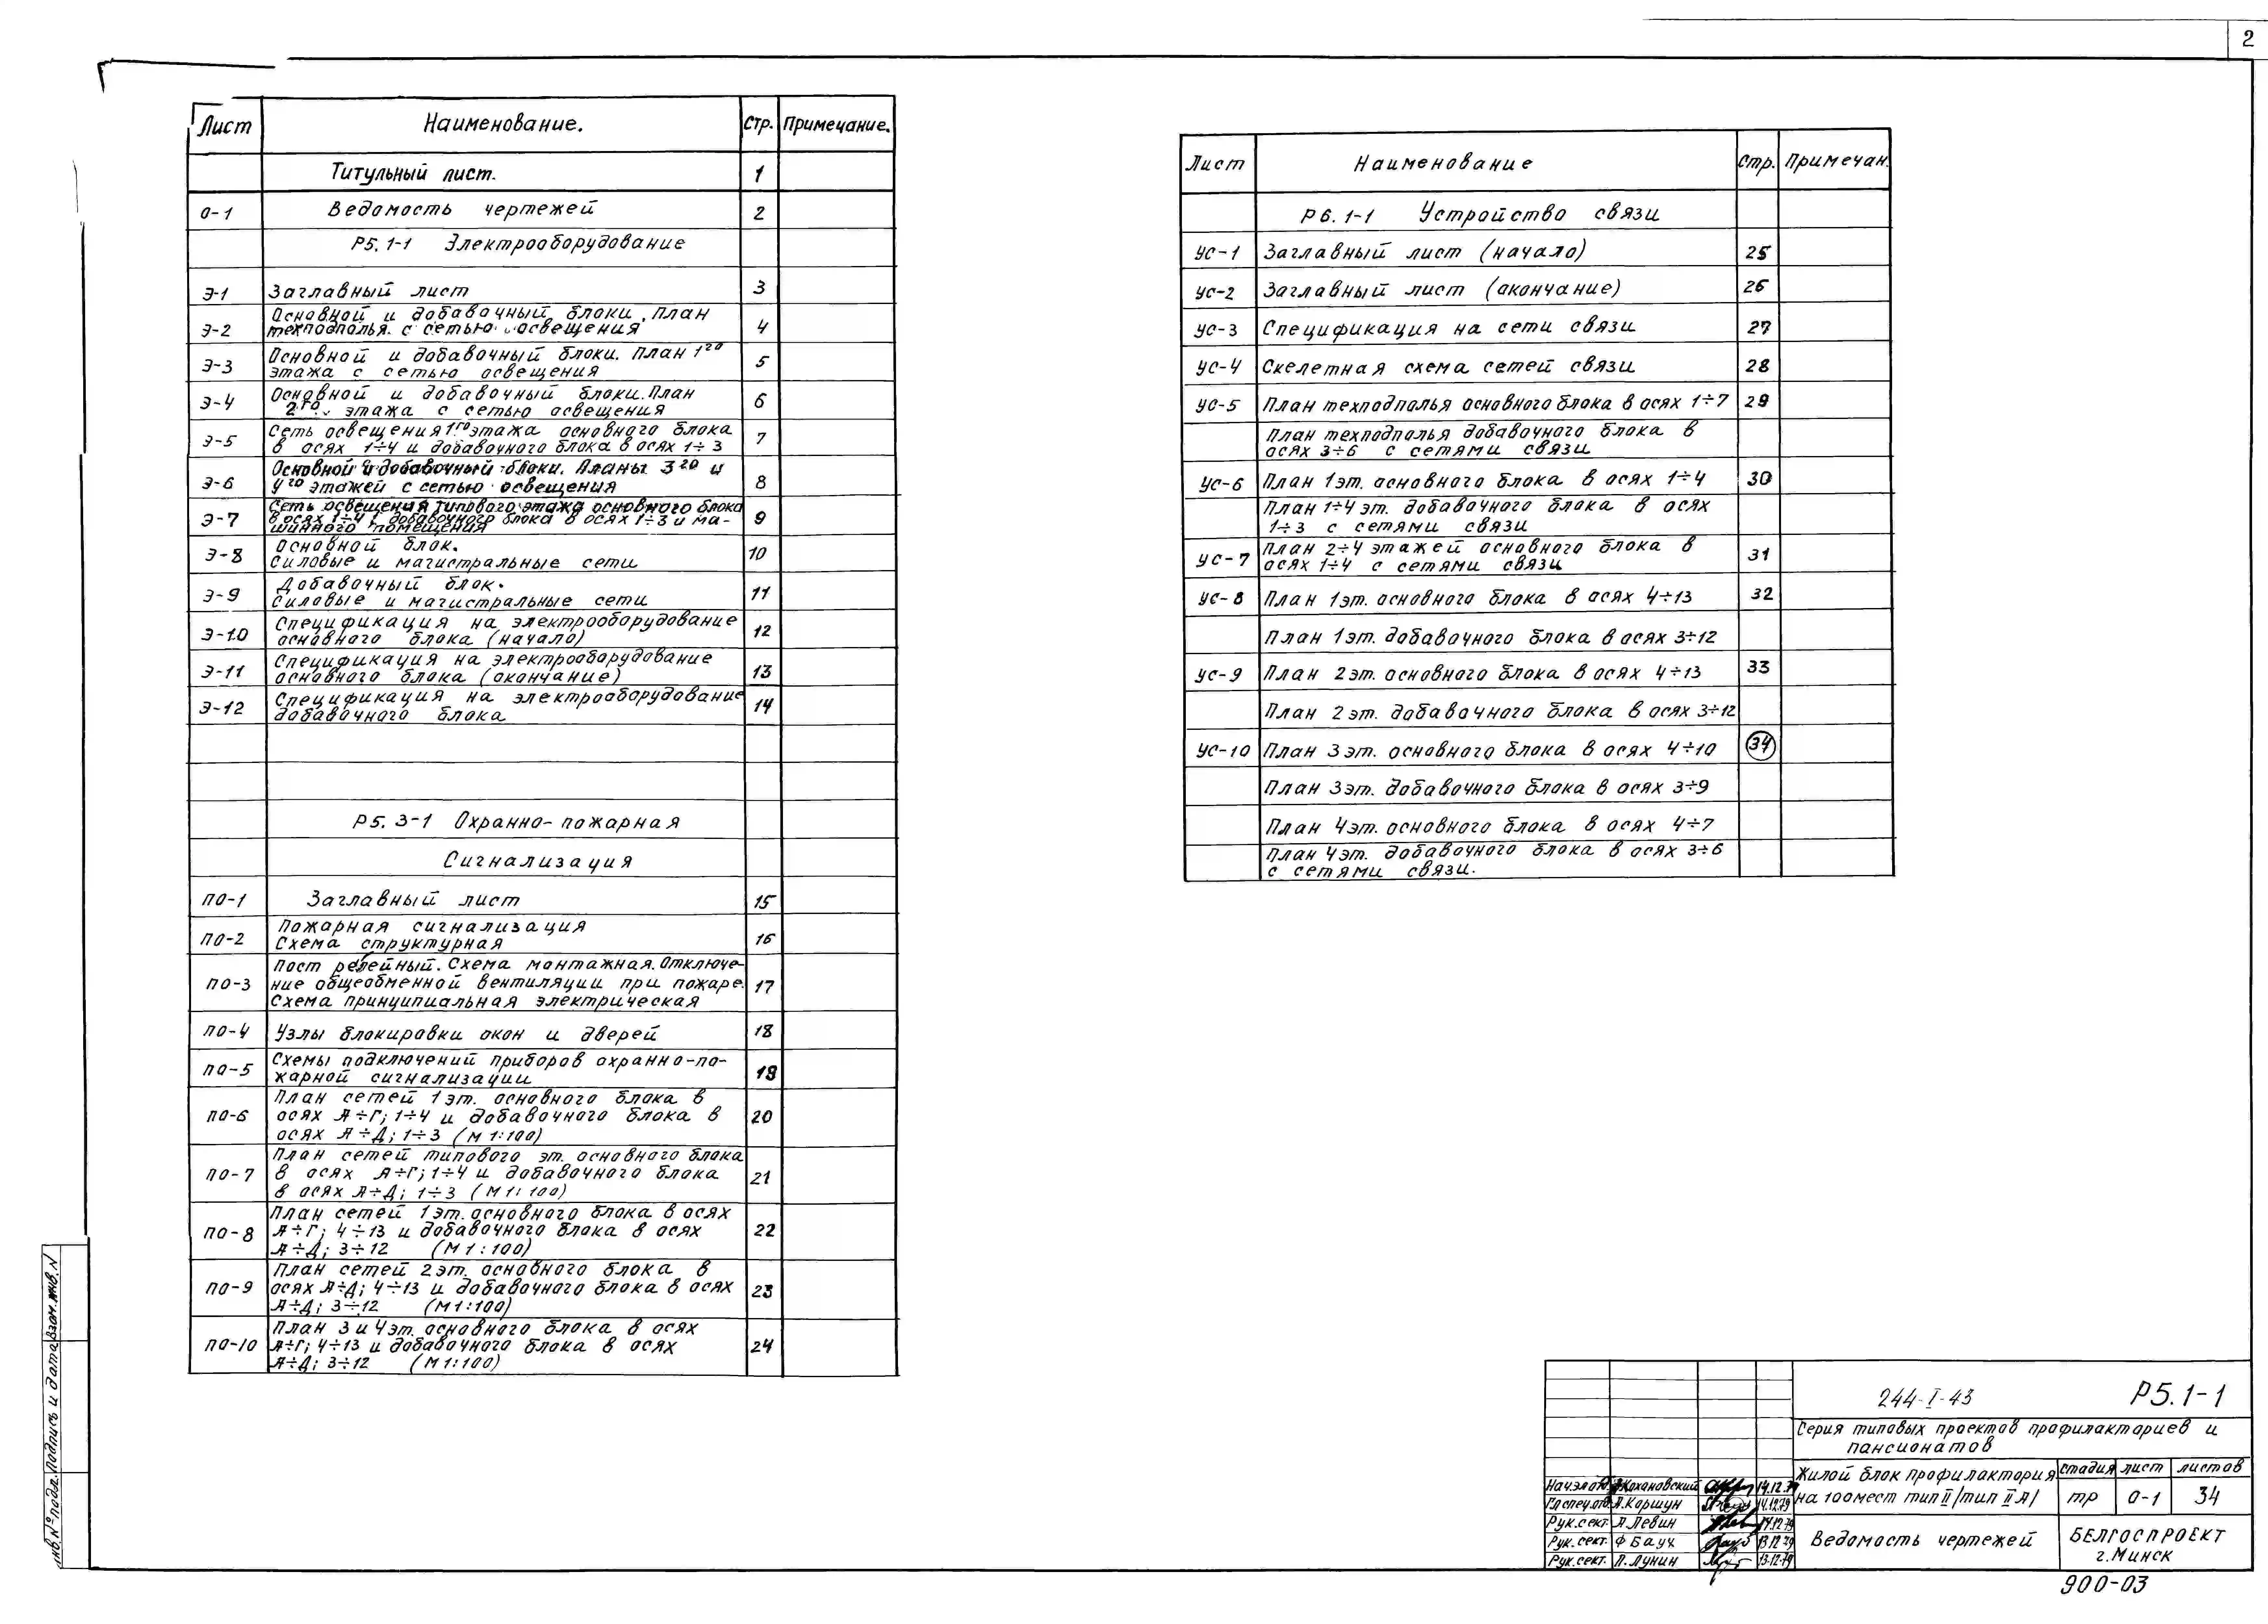 2
Лист Наименование. Стр. Примечание.
Титульный лист. 1
О-1 Ведомость чертежей 2
Р5.1-1 Электрооборудование
Э-1 Заглавный лист 3
Основной и добавочный блоки. План
Э-2 техподполья с сетью освещения 4
Основной и добавочный блоки. План 1го
Э-3 этажа с сетью освещения 5
Основной и добавочный блоки. План
Э-4 2го этажа с сетью освещения 6
Сеть освещения 1го этажа основного блока
Э-5 в осях 1÷4 и добавочного блока в осях 1÷3 7
Основной и добавочный блоки. Планы 3го и
Э-6 4го этажей с сетью освещения 8
Сеть освещения типового этажа основного блока
Э-7 в осях 1÷4, добавочного блока в осях 1÷3 и ма- 9
шинного помещения
Основной блок.
Э-8 Силовые и магистральные сети 10
Добавочный блок.
Э-9 Силовые и магистральные сети 11
Спецификация на электрооборудование
Э-10 основного блока (начало) 12
Спецификация на электрооборудование
Э-11 основного блока (окончание) 13
Спецификация на электрооборудование
Э-12 добавочного блока 14
Р5.3-1 Охранно-пожарная
Сигнализация
ПО-1 Заглавный лист 15
Пожарная сигнализация
ПО-2 Схема структурная 16
Пост релейный. Схема монтажная. Отключе-
ПО-3 ние общеобменной вентиляции при пожаре. 17
Схема принципиальная электрическая
ПО-4 Узлы блокировки окон и дверей 18
Схемы подключений приборов охранно-по-
ПО-5 жарной сигнализации 19
План сетей 1 эт. основного блока в
ПО-6 осях А÷Г; 1÷4 и добавочного блока в 20
осях А÷Д; 1÷3 (М 1:100)
План сетей типового эт. основного блока
ПО-7 в осях А÷Г; 1÷4 и добавочного блока 21
в осях А÷Д; 1÷3 (М 1:100)
План сетей 1 эт. основного блока в осях
ПО-8 А÷Г; 4÷13 и добавочного блока в осях 22
А÷Д; 3÷12 (М 1:100)
План сетей 2 эт. основного блока в
ПО-9 осях А÷Д; 4÷13 и добавочного блока в осях 23
А÷Д; 3÷12 (М 1:100)
План 3 и 4 эт. основного блока в осях
ПО-10 А÷Г; 4÷13 и добавочного блока в осях 24
А÷Д; 3÷12 (М 1:100)
Лист Наименование Стр. Примечан.
Р6.1-1 Устройство связи
УС-1 Заглавный лист (начало) 25
УС-2 Заглавный лист (окончание) 26
УС-3 Спецификация на сети связи 27
УС-4 Скелетная схема сетей связи 28
УС-5 План техподполья основного блока в осях 1÷7 29
План техподполья добавочного блока в
осях 3÷6 с сетями связи
УС-6 План 1 эт. основного блока в осях 1÷4 30
План 1÷4 эт. добавочного блока в осях
1÷3 с сетями связи
План 2÷4 этажей основного блока в
УС-7 осях 1÷4 с сетями связи 31
УС-8 План 1 эт. основного блока в осях 4÷13 32
План 1 эт. добавочного блока в осях 3÷12
УС-9 План 2 эт. основного блока в осях 4÷13 33
План 2 эт. добавочного блока в осях 3÷12
УС-10 План 3 эт. основного блока в осях 4÷10 34
План 3 эт. добавочного блока в осях 3÷9
План 4 эт. основного блока в осях 4÷7
План 4 эт. добавочного блока в осях 3÷6
с сетями связи.
инв.№подл. Подпись и дата взам.инв.N
244-I-43 Р5.1-1
Серия типовых проектов профилакториев и
пансионатов
Жилой блок профилактория
на 100 мест тип II /тип II А/
стадия лист листов
ТР О-1 34
Ведомость чертежей
БЕЛГОСПРОЕКТ
г. Минск
Нач.эл.отд. Кохановский 14.12.79
Гл.спец.отд. А.Коршун 14.12.79
Рук.сект. Л.Левин 14.12.79
Рук.сект. Ф Баух 13.12.79
Рук.сект. Л.Лунин 13.12.79
900-03